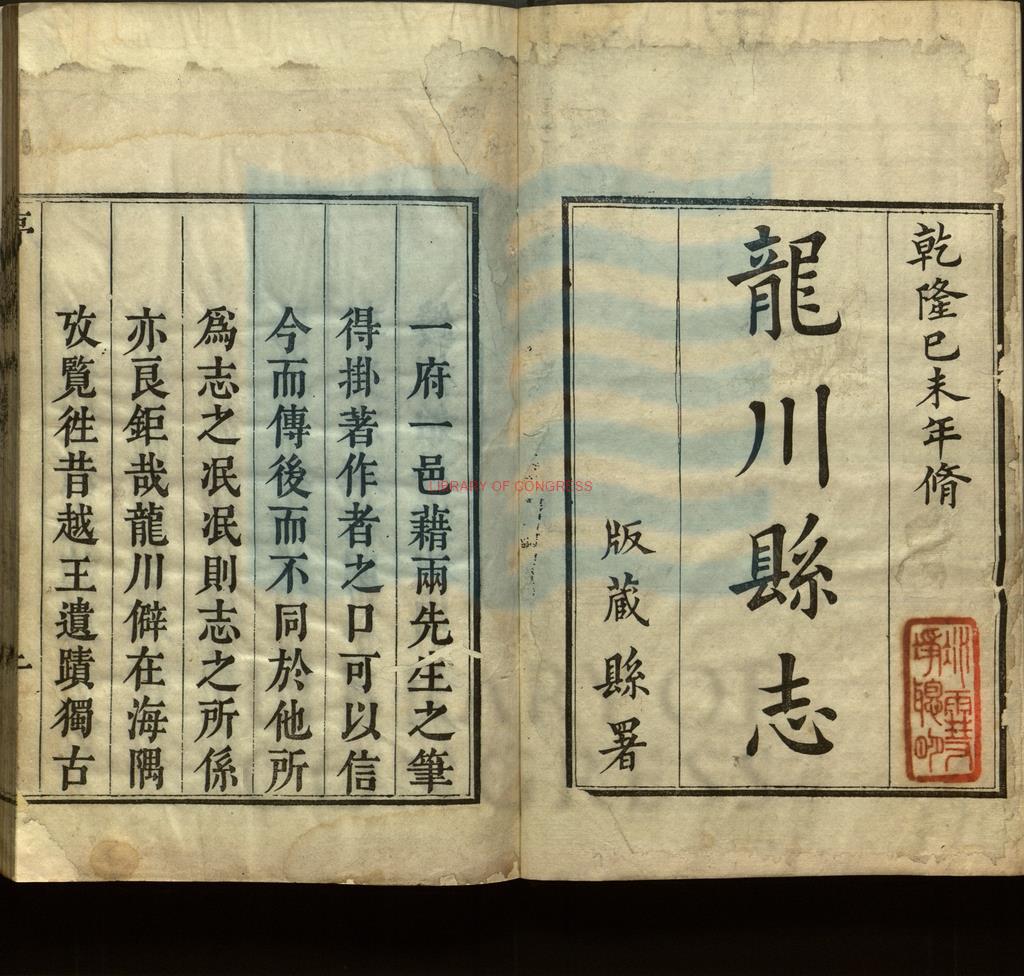 乾隆己未年脩
龍川縣志
版蔵縣署
一府一邑藉兩先生之筆
得掛著作者之口可以信
今而傳後而不同於他所
爲志之泯泯則志之所係
亦良鉅哉龍川僻在海隅
攷覽徃昔越王遺蹟獨古
LIBRARY OF CONGRESS